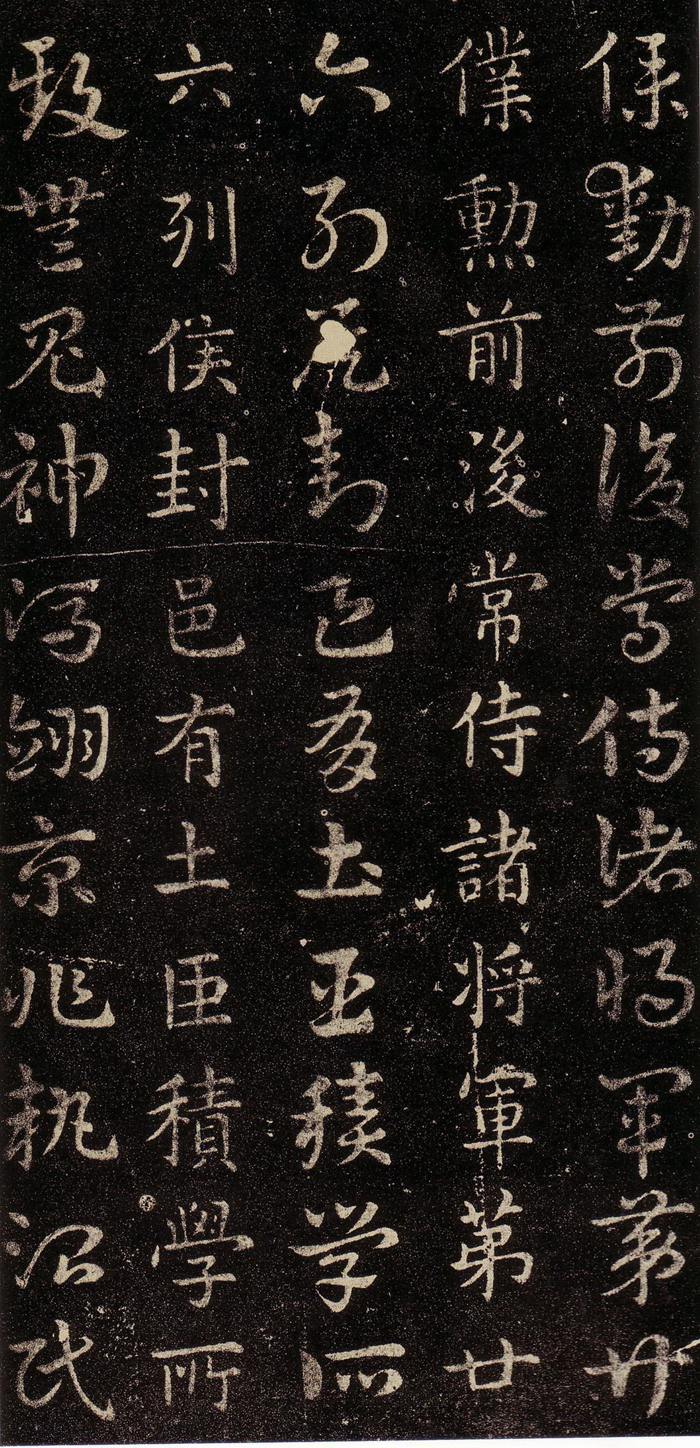 僕勳前後常侍諸將軍第廿
僕勳前後常侍諸將軍第廿
六列封邑有土臣積學所
六列侯封邑有土臣積學所
致無鬼神馮翊京兆執治民